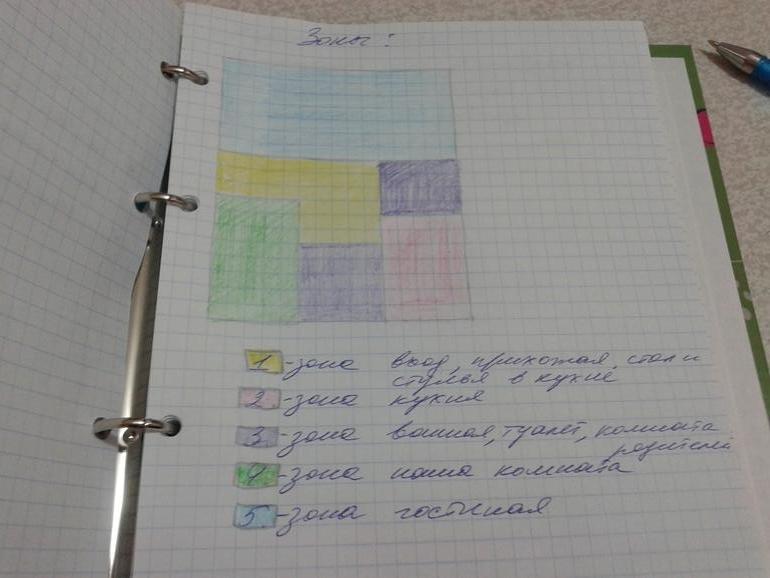 Зоны:
1 -зона вход, прихожая, стол и
стулья в кухне
2 -зона кухня
3 -зона ванная, туалет, комната
родителей
4 -зона наша комната
5 -зона гостиная